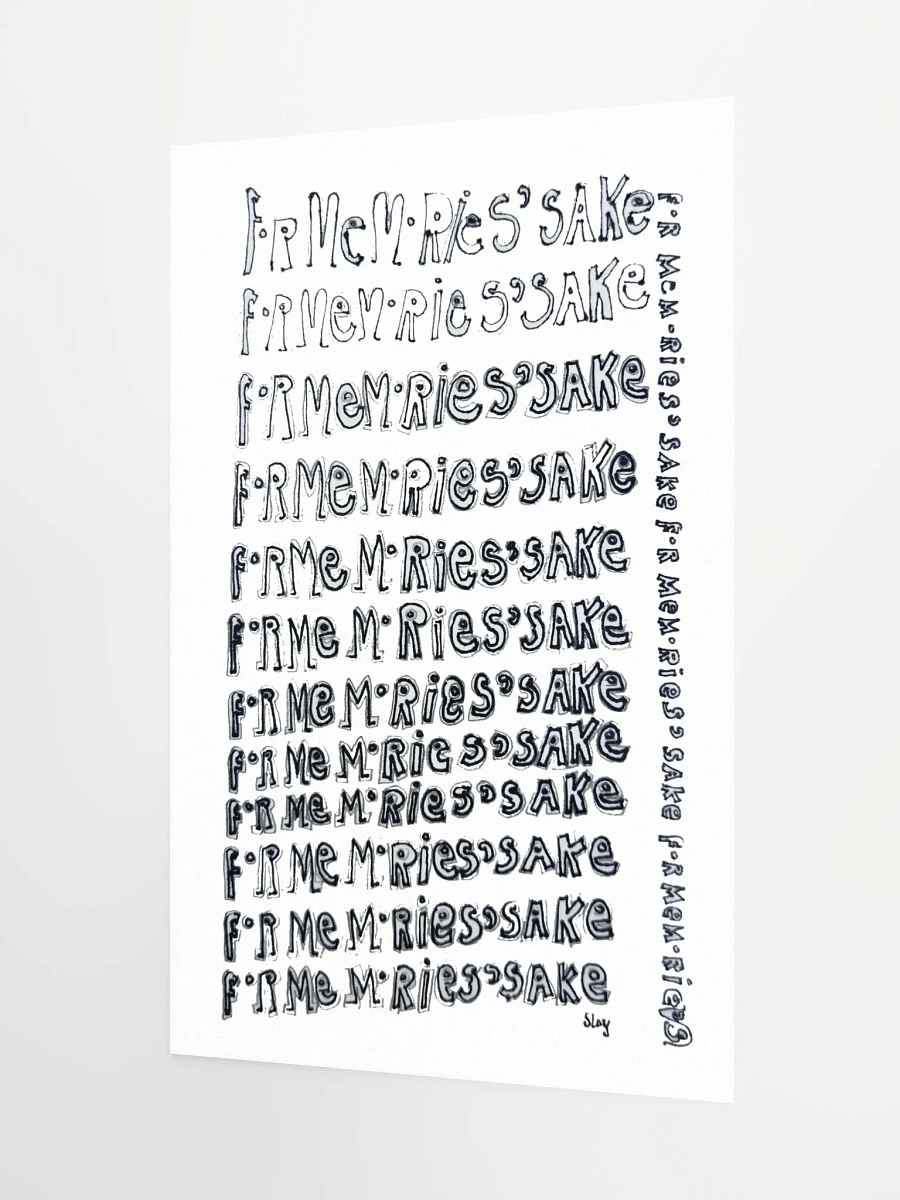 F•R MeM•Ries' SAKe
F•R MeM•Ries' SAKe
F•R MeM•Ries' SAKe
F•R MeM•Ries' SAKe
F•R MeM•Ries' SAKe
F•R MeM•Ries' SAKe
F•R MeM•Ries' SAKe
F•R MeM•Ries' SAKe
F•R MeM•Ries' SAKe
F•R MeM•Ries' SAKe
F•R MeM•Ries' SAKe
F•R MeM•Ries' SAKe
Slay
F•R MeM•Ries' SAKe F•R MeM•Ries' SAKe F•R MeM•Ries'